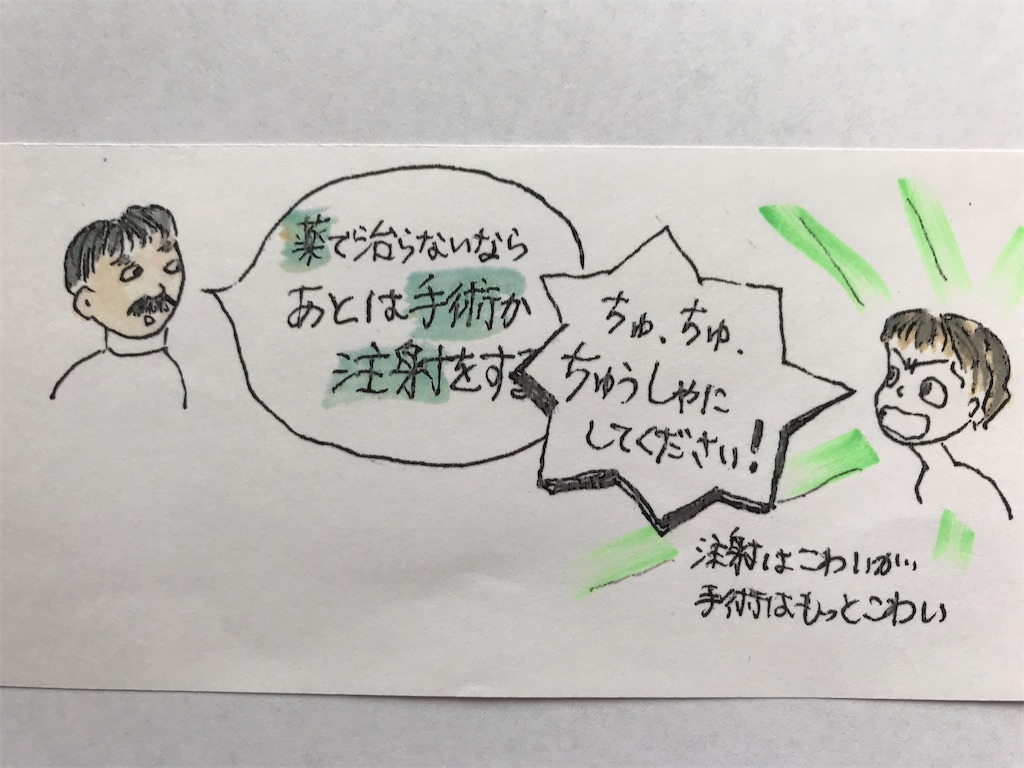 薬で治らないなら
あとは手術か
注射をする
ちゅ、ちゅ、
ちゅうしゃに
してください!
注射はこわいが…
手術はもっとこわい